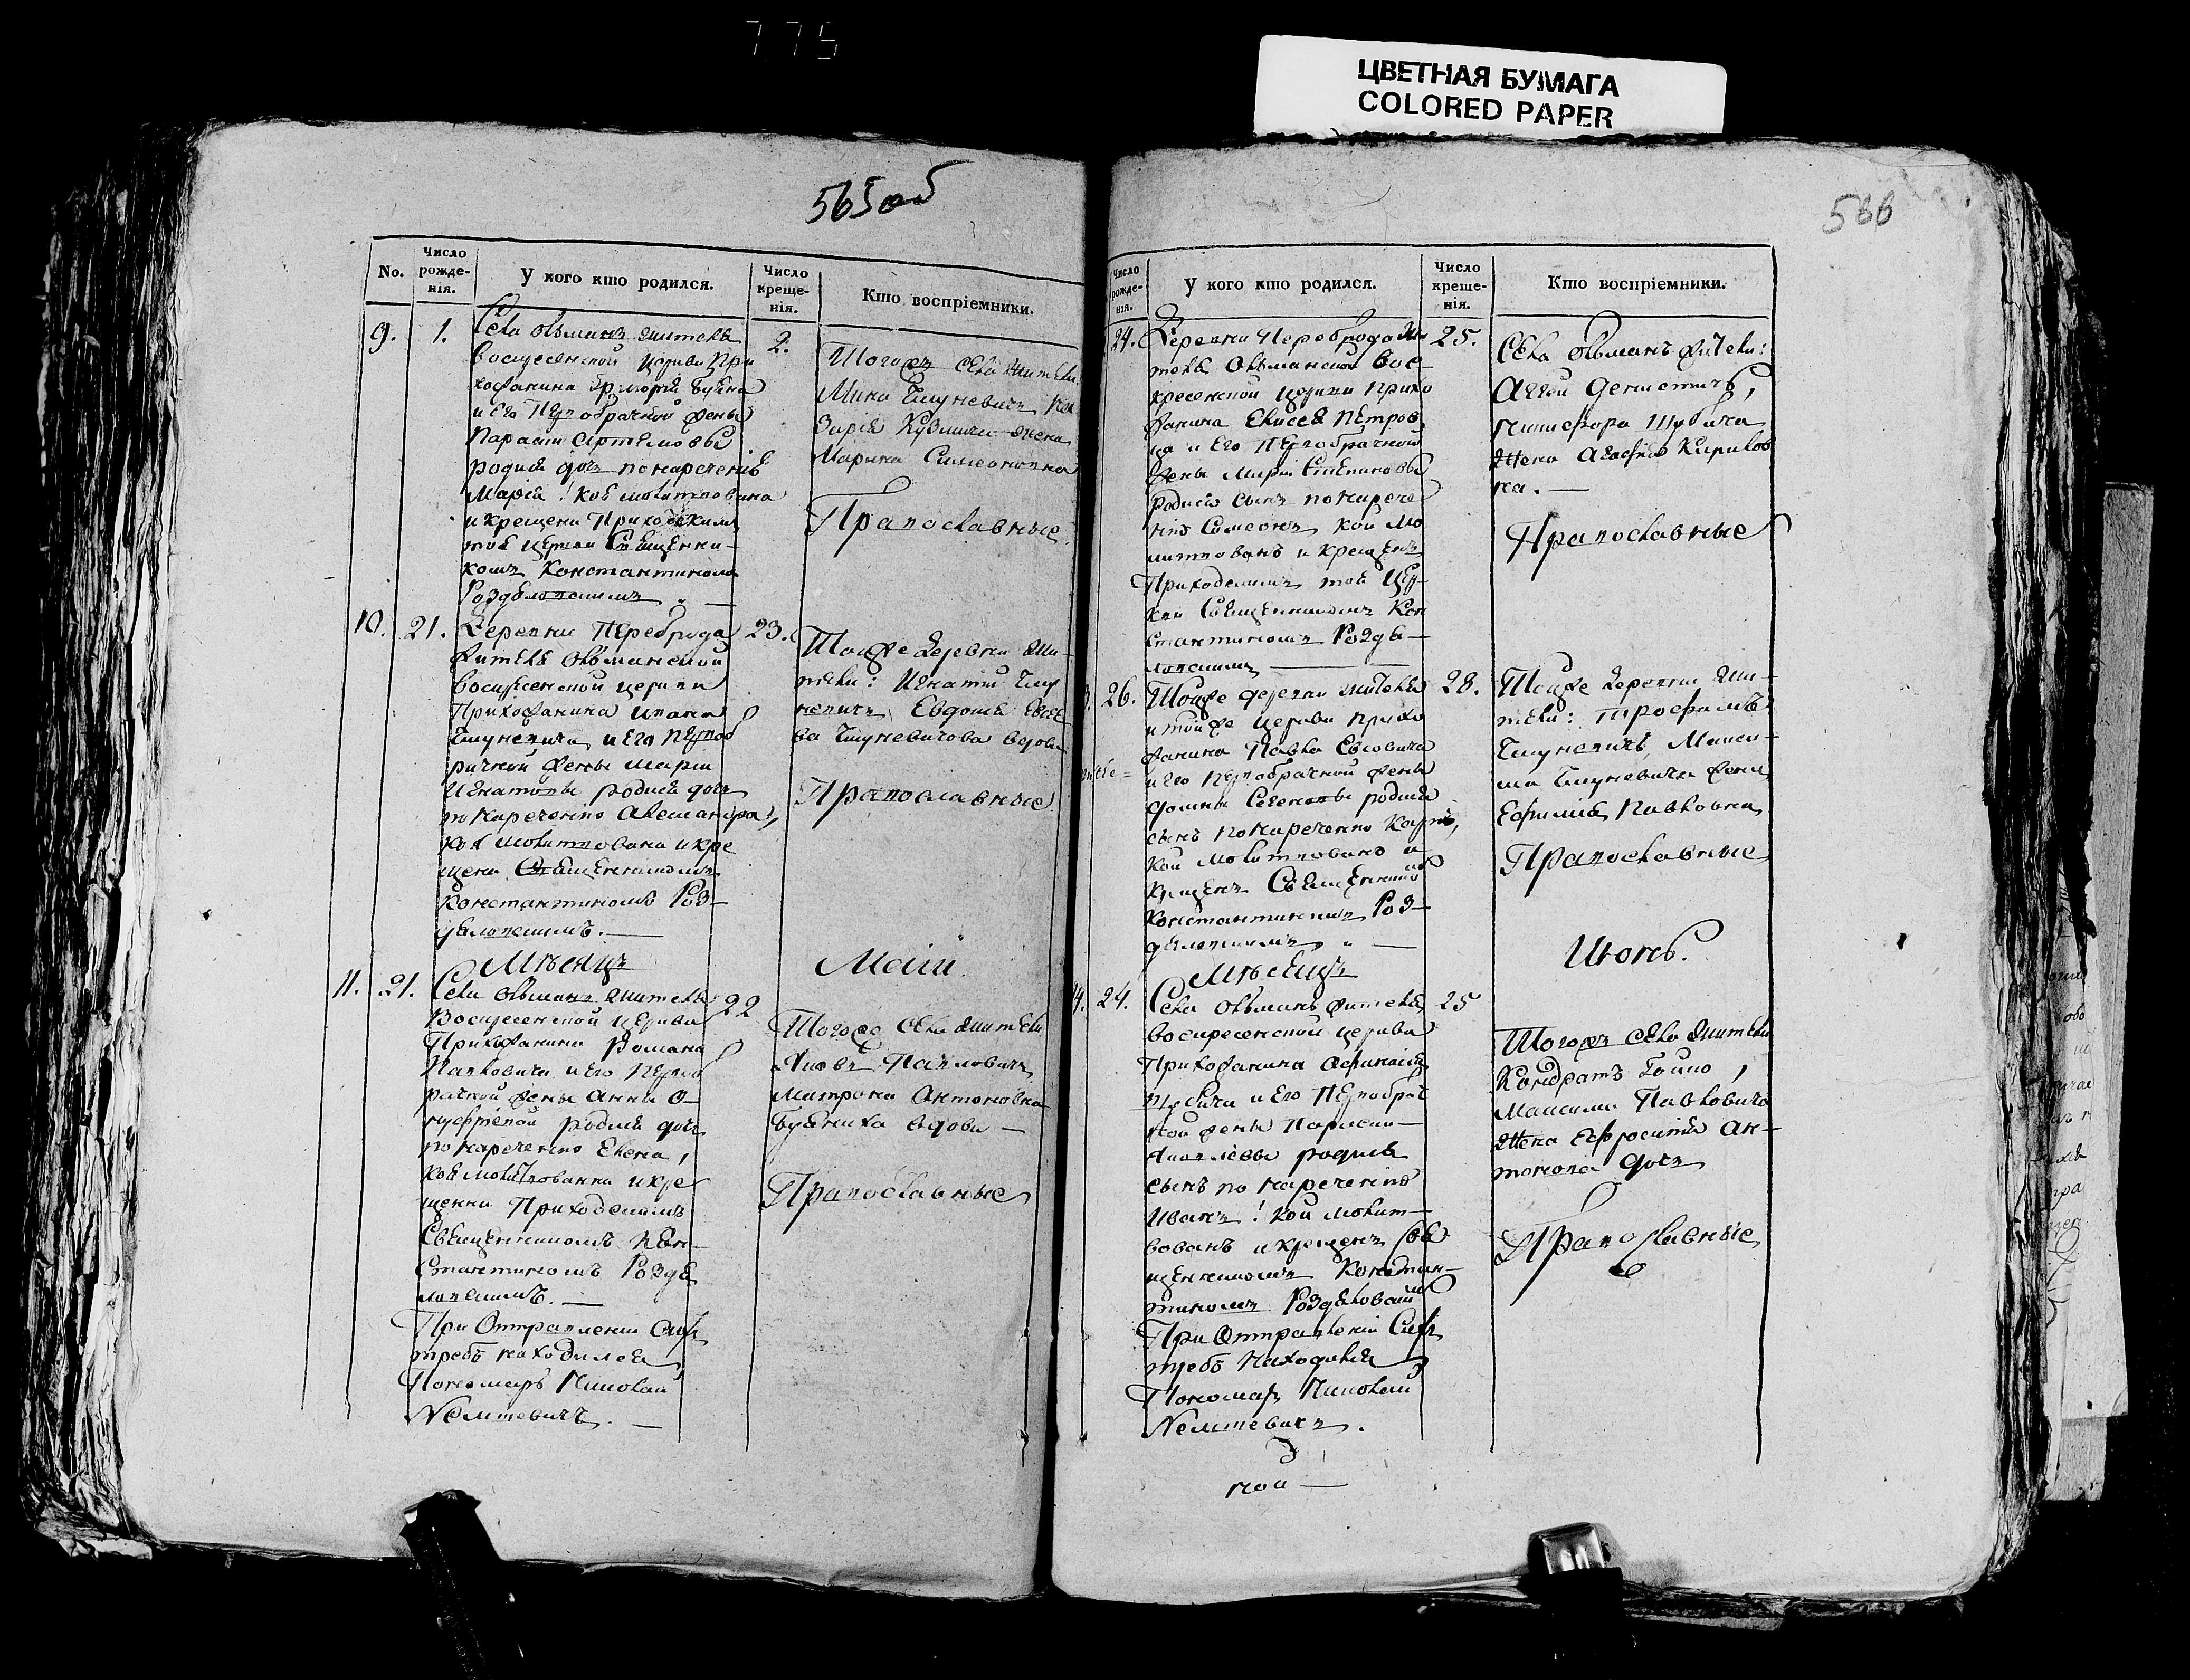 775
ЦВЕТНАЯ БУМАГА
COLORED PAPER
565об
No.
Число рожденія.
У кого кто родился.
Число крещенія.
Кто воспріемники.
9. 1.
Села Ольманъ жителя
воскресенской церкви При
хожанина Григорія
и Его Первобрачной жены
Параски Артемовы
родися дочь по нареченію
Марія! коя молитвована
и крещена Приходскимъ
той церкви Священни-
комъ Константиномъ
Роздяловскимъ
2.
Тогожъ Села жители
Мина Чмуневичъ
Кузмича жена
Марина Симеоновна
Православные
10. 21.
Деревни Переброда
жителя Ольманской
воскресенской церкви
Прихожанина Ивана
Чмуневича и Его Первоб
рачной жены Маріи
Игнатовы родися дочь
по нареченію Александра,
коя молитвована и кре
щена Священникомъ
Константиномъ Роз-
дяловскимъ.
23.
Тойже Деревни жи-
тели: Игнатій Чму
невичъ, Евдокія
ва Чмуневичова вдова
Православные
Мѣсяцъ Маій
11. 21.
Села Ольманъ жителя
Воскресенской Церкви
Прихожанина Романа
Павковича и Его Первоб
рачной жены Анны О-
нуфріевой родися дочь
по нареченію Елена,
коя молитвованна и кре
щенна Приходскимъ
Священникомъ Кон-
стантиномъ Роздя
ловскимъ.
При Отправленіи Сихъ
требъ находился
Пономарь Николай
Нелитевичъ.
22
Тогоже Села жители
Яковъ Павловичъ,
Матрона Антоновна
вдова
Православные
566
Число рожденія.
У кого кто родился.
Число крещенія.
Кто воспріемники.
24.
Деревни Переброда Жи-
теля Ольманской Вос-
кресенской церкви прихо
жанина Елисея Петров
ца и Его Первобрачной
жены Маріи Степановы
родися сынъ по нарече
нію Симеонъ кой мо
литвованъ и крещенъ
Приходскимъ той Цер-
кви Священникомъ Кон
стантиномъ Роздя-
ловскимъ
25.
Села Ольманъ жители:
Денисичъ,
Никифора Шубича
Жена Агафія Кирилов
на.
Православные
26.
Тойже деревни жителя
и тойже церкви прихо
жанина Павла
и Его первобрачной жены
Домны Семеновы родися
сынъ по нареченію Карпъ,
кой молитвованъ и
крещенъ Священникомъ
Константиномъ Роз-
дяловскимъ
28.
Тойже Деревни жи-
тели: Трофимъ
Чмуневичъ, Макси-
ма Чмуневича жена
Ефимія Павловна
Православные
Мѣсяцъ Июнь.
24.
Села Ольманъ жителя
воскресенской церкви
Прихожанина Афанасія
и Его Первобрач
ной жены Параски
Яковлевы родися
сынъ по нареченію
Иванъ! кой молит-
вованъ и крещенъ Свя
щенникомъ Констан-
тиномъ Роздяловскимъ
При Отправленіи Сихъ
требъ Находился
Пономарь Николай
Нелитевичъ.
25
Тогожъ Села жители
Кондратъ Гошко,
Максима Павковича
Жена Ефросинія Ан-
тонова дочь
Православные
ной